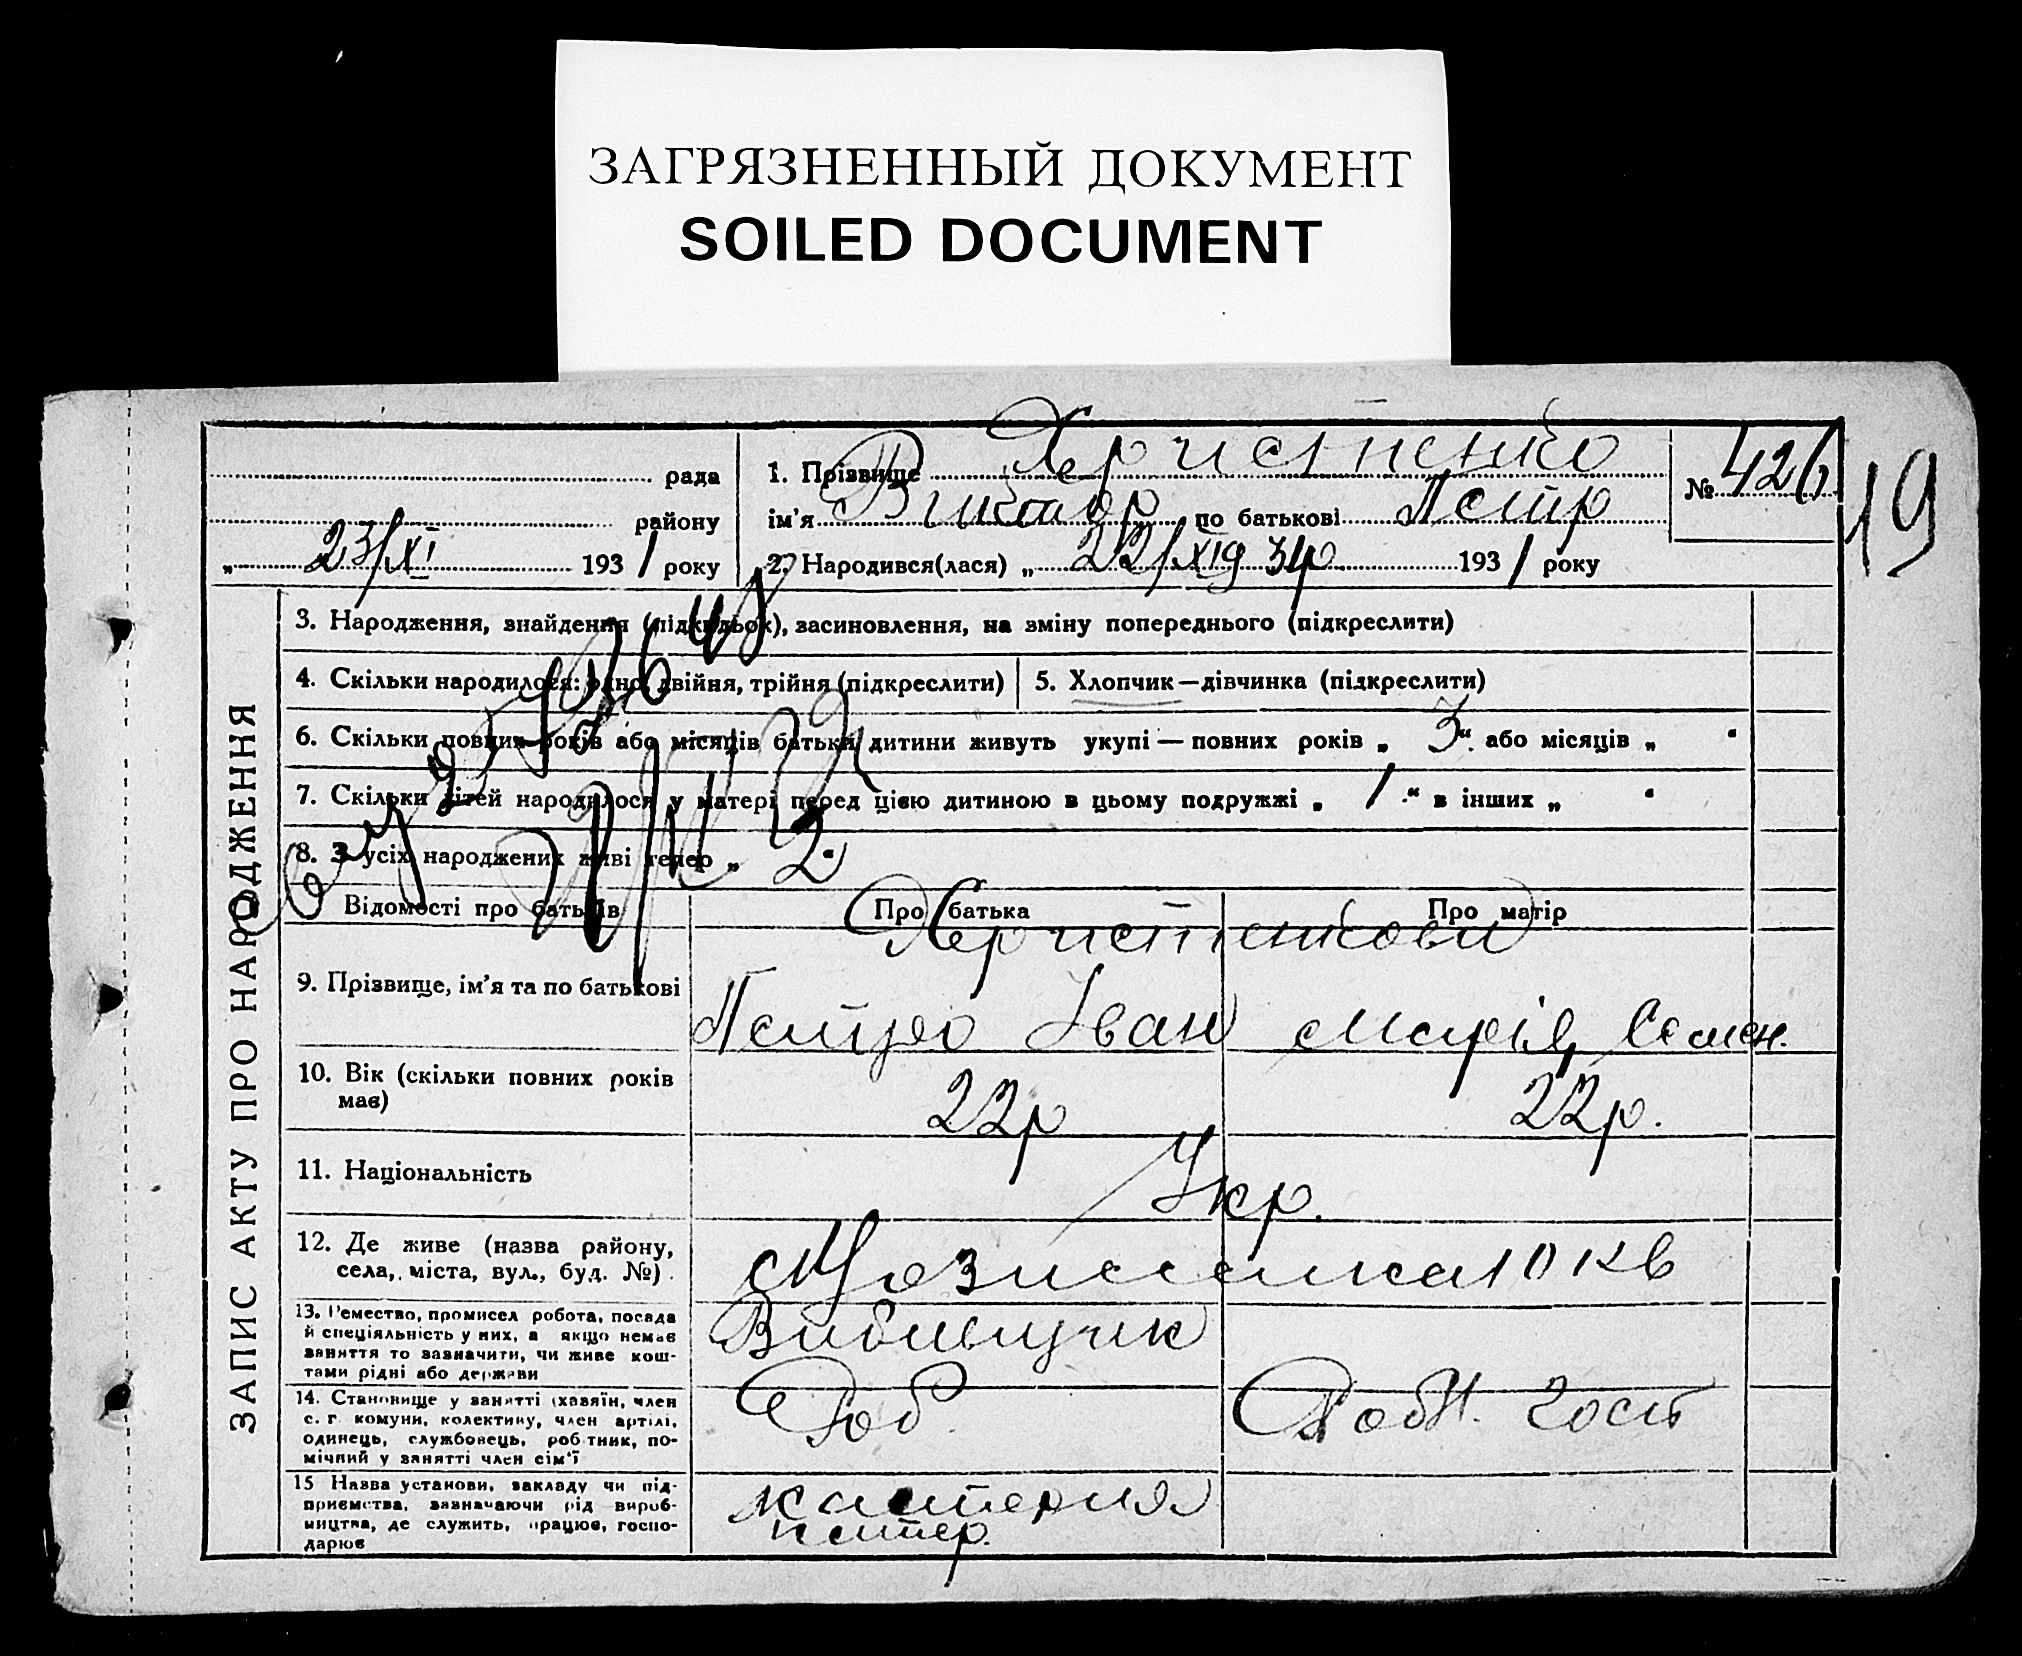 ЗАГРЯЗНЕННЫЙ ДОКУМЕНТ
SOILED DOCUMENT
рада
району
„ 23/XI 1931 року
1. Прізвище Христенко
ім'я Виктор по батькові Петр
2. Народився(лася) „ 22/XI 1931 року
№ 426
19
ЗАПИС АКТУ ПРО НАРОДЖЕННЯ
3. Народження, знайдення (підкидьок), засиновлення, на зміну попереднього (підкреслити)
4. Скільки народилося: одно, двійня, трійня (підкреслити)
5. Хлопчик—дівчинка (підкреслити)
6. Скільки повних років або місяців батьки дитини живуть укупі — повних років „ 3 “ або місяців „ “
7. Скільки дітей народилося у матері перед цією дитиною в цьому подружжі „ 1 “ в інших „ “
8. З усіх народжених живі тепер „ 2 “
Відомості про батьків
Про батька
Про матір
9. Прізвище, ім'я та по батькові
Христенкови
Петро Іван
Марія Семен.
10. Вік (скільки повних років
має)
22р
22р.
11. Національність
Укр.
12. Де живе (назва району,
села, міста, вул., буд. №).
10 кв
13. Ремество, промисел робота, посада
й спеціяльність у них, а якщо немає
заняття то зазначити, чи живе кош-
тами рідні або держави
14. Становище у занятті (хазяїн, член
с. г. комуни, колективу, член артілі,
одинець, службовець, робітник, по-
мічний у занятті член сім'ї
Роб
Гост
15 Назва установи, закладу чи під-
приємства, зазначаючи рід вироб-
ництва, де служить, працює, госпо-
дарює